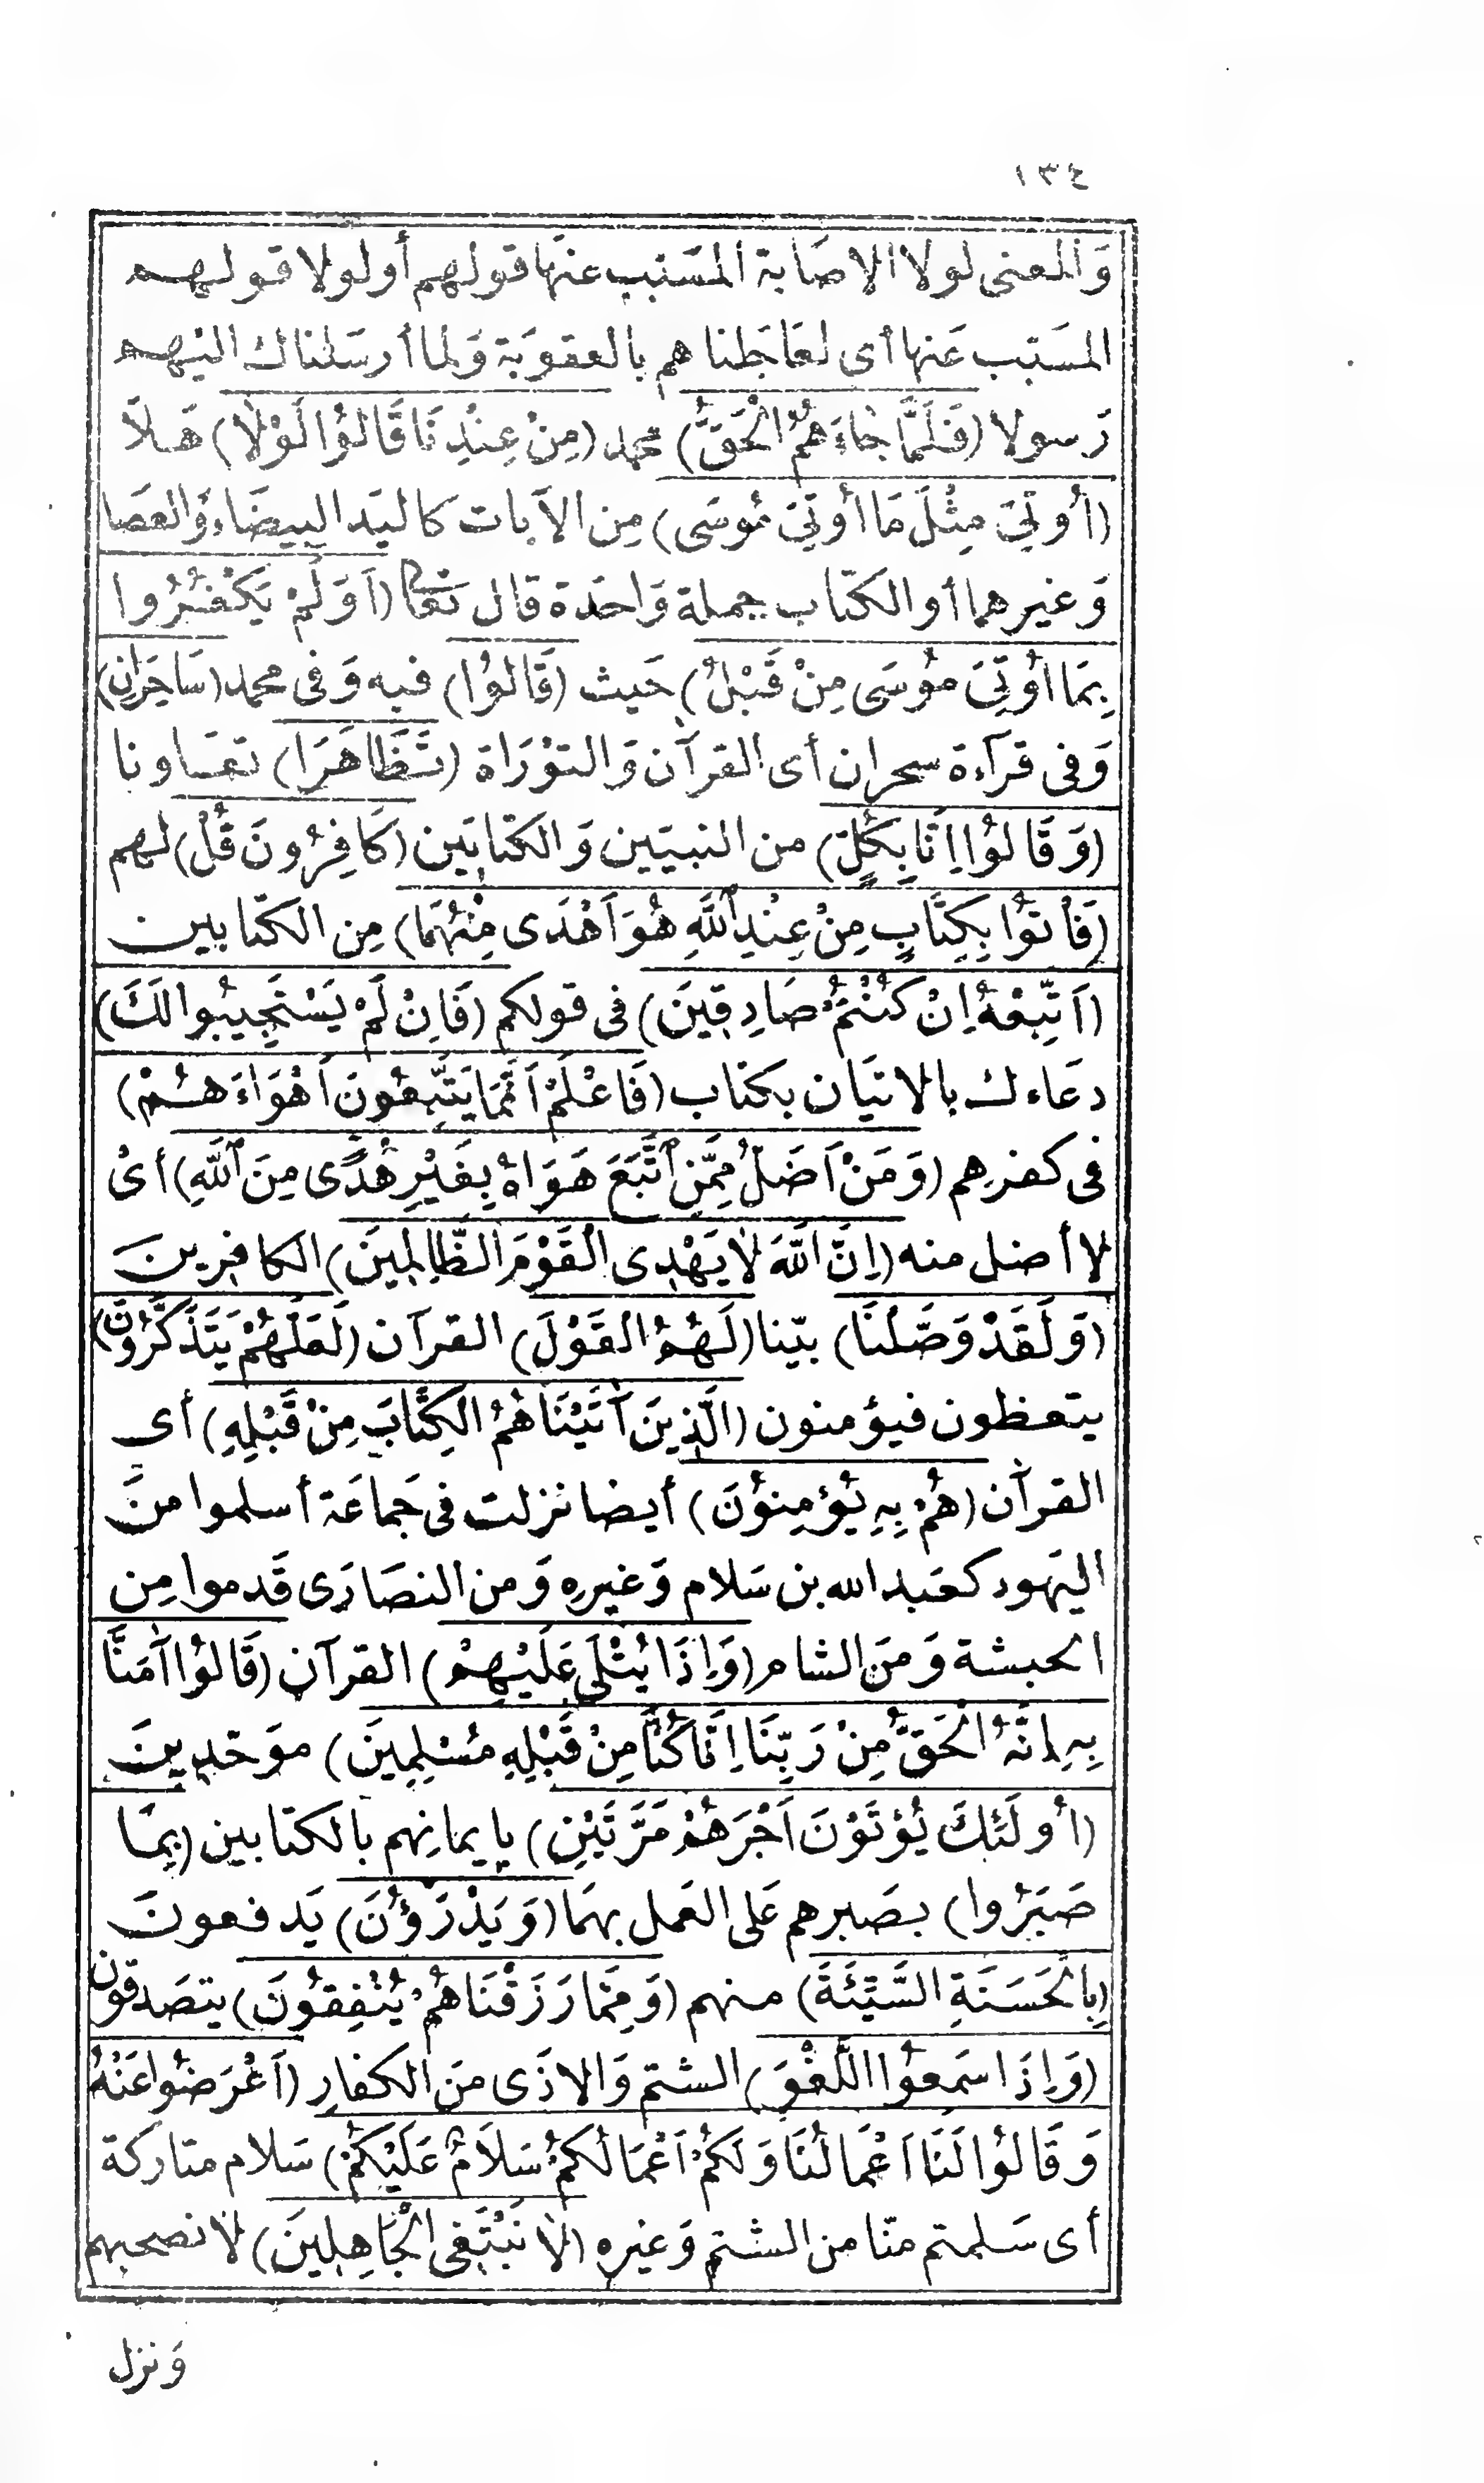 ١٣٤
وَالمعنى لولا الاصَابة المسَبب عنهَا قولهم أو لولا قولهم
المسَبب عَنها أى لعَاجَلناهم بالعقوبَة وَلما أرسَلناك اليْهم
رَسولا (فَلَمَّا جَاءَهُمُ الْحَقُّ) محمد (مِنْ عِنْدِنَا قَالُوا لَوْلَا) هَلاَّ
(أُوتِيَ مِثْلَ مَا أُوتِيَ مُوسَى) مِن الآيات كاليَد البيضَاء وَالعصَا
وَغيرهما أو الكتاب جملة وَاحدَة قال تعَا (اَوَلَمْ يَكْفُرُوا
بِمَا أُوتِيَ مُوسَى مِنْ قَبْلُ) حَيث (قَالُوا) فيه وَفى محمد (سَاحِرَانِ)
وَفى قرآءة سحران أى القرآن وَالتوْرَاة (تَظَاهَرَا) تعَاونا
(وَقَالُوا اِنَّا بِكُلٍّ) من النبيَين وَالكتابَين (كَافِرُونَ قُلْ) لهم
(فَأْتُوا بِكِتَابٍ مِنْ عِنْدِ اللَّهِ هُوَ اَهْدَى مِنْهُمَا) مِن الكتابين
(اَتَّبِعْهُ اِنْ كُنْتُمْ صَادِقِينَ) فى قولكم (فَاِنْ لَمْ يَسْتَجِيبُوا لَكَ)
دعَاءك بالاتيَان بكتاب (فَاعْلَمْ اَنَّمَا يَتَّبِعُونَ اَهْوَاءَهُمْ)
فى كفرهم (وَمَنْ اَضَلُّ مِمَّنِ اتَّبَعَ هَوَاهُ بِغَيْرِ هُدًى مِنَ اللَّهِ) أىْ
لا أضل منه (اِنَّ اللَّهَ لَا يَهْدِى الْقَوْمَ الظَّالِمِينَ) الكافرينَ
(وَلَقَدْ وَصَّلْنَا) بيّنا (لَهُمُ القَوْلَ) القرآن (لَعَلَّهُمْ يَتَذَكَّرُونَ)
يتعظون فيؤمنون (الَّذِينَ آتَيْنَاهُمُ الكِتَابَ مِنْ قَبْلِهِ) أى
القرآن (هُمْ بِهِ يُؤْمِنُونَ) أيضا نزلت فى جَماعَة أسلموا منَ
اليَهود كعَبد الله بن سَلام وَغيرِه وَمن النصَارَى قَدموا مِن
الحبشة وَمنَ الشام (وَاِذَا يُتْلَى عَلَيْهِمْ) القرآن (قَالُوا آمَنَّا
بِهِ اِنَّهُ الْحَقُّ مِنْ رَبِّنَا اِنَّا كُنَّا مِنْ قَبْلِهِ مُسْلِمِينَ) موَحّدينَ
(أُولَئِكَ يُؤْتَوْنَ اَجْرَهُمْ مَرَّتَيْنِ) بإيمانِهم بالكتابين (بِمَا
صَبَرُوا) بصَبرهم عَلى العَمل بهمَا (وَيَدْرَؤُنَ) يَدفعونَ
(بِالْحَسَنَةِ السَّيِّئَةَ) منهم (وَمِمَّا رَزَقْنَاهُمْ يُنْفِقُونَ) يتصَدقون
(وَاِذَا سَمِعُوا اللَّغْوَ) الشتم وَالاذَى منَ الكفارِ (اَعْرَضُوا عَنْهُ
وَقَالُوا لَنَا اَعْمَالُنَا وَلَكُمْ اَعْمَالُكُمْ سَلَامٌ عَلَيْكُمْ) سَلام متاركة
أى سَلمتم منّا من الشتم وَغيرِه (لَا نَبْتَغِى الْجَاهِلِينَ) لا نصحبهم
وَنزل